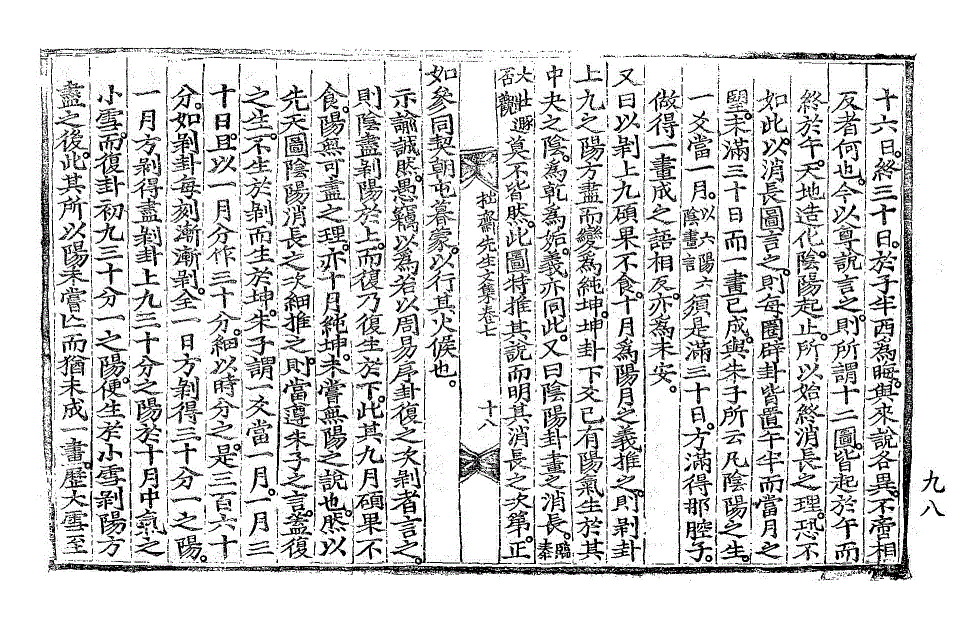 十六日。終三十日。於子半西爲晦。與來說各異。不啻相
反者何也。今以尊說言之。則所謂十二圖。皆起於午而
終於午。天地造化。陰陽起止。所以始終消長之理。恐不
如此。以消長圖言之。則每圈辟卦皆置午半而當月之
望。未滿三十日而一畫已成。與朱子所云凡陰陽之生。
一爻當一月。以六陽六陰畫言須是滿三十日。方滿得那腔子。
做得一畫成之語相反。亦爲未安。
又曰以剝上九碩果不食。十月爲陽月之義推之。則剝卦
上九之陽方盡而變爲純坤。坤卦下爻已有陽氣生於其
中。夬之陰。爲乾爲姤。義亦同此。又曰陰陽卦畫之消長。臨泰
大壯遯否觀莫不皆然。此圖特推其說而明其消長之次第。正
拙齋先生文集卷七 十八
如參同契朝屯暮蒙。以行其火候也。
示諭誠然。愚竊以爲若以周易序卦復之次剝者言之。
則陰盡剝陽於上。而復乃復生於下。此其九月碩果不
食。陽無可盡之理。亦十月純坤。未嘗無陽之說也。然以
先天圖陰陽消長之次細推之。則當遵朱子之言。蓋復
之生。不生於剝而生於坤。朱子謂一爻當一月。一月三
十日。且以一月分作三十分。細以時分之。是三百六十
分。如剝卦每刻漸漸剝。全一日方剝得三十分一之陽。
一月方剝得盡剝卦上九三十分之陽。於十月中氣之
小雪。而復卦初九三十分一之陽。便生於小雪剝陽方
盡之後。此其所以陽未嘗亡。而猶未成一畫。歷大雪至
九八